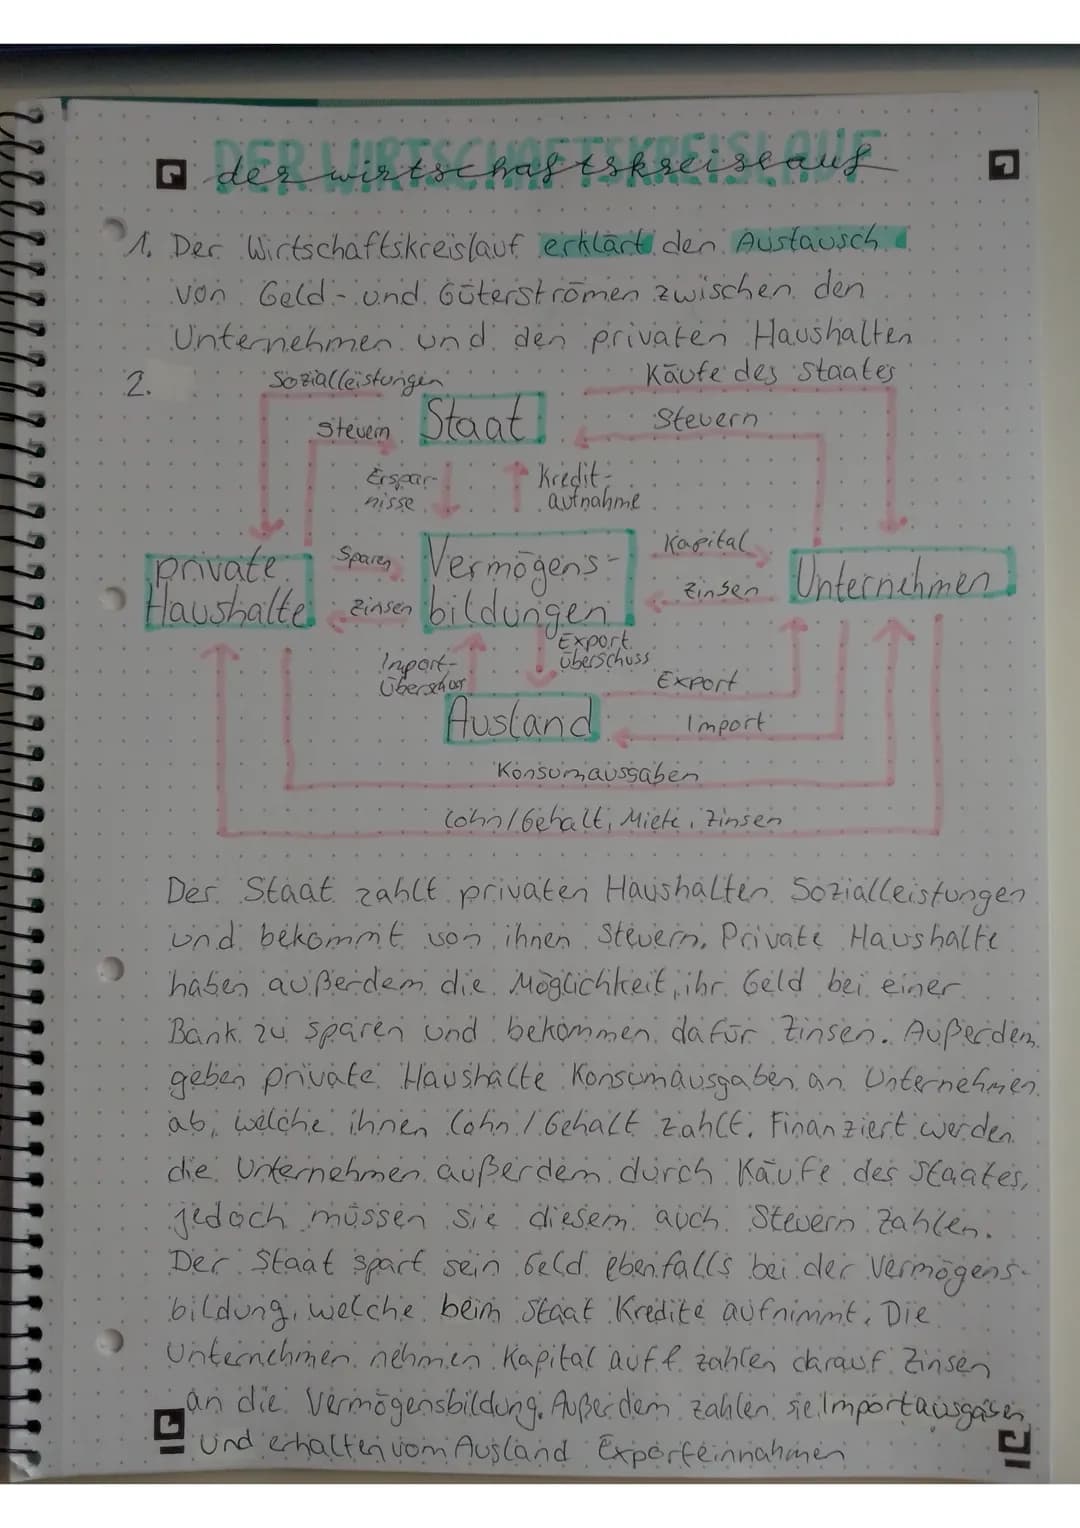 DER WIRTSCHAFTSKREISLAUF
der wirtschaftskreislauf
1. Der Wirtschaftskreislauf erklärt den Austausch
von Geld- und Güterströmen zwischen den
Unternehmen und den privaten Haushalten
2.
Sozialleistungen
Käufe des Staates
Steuern
Staat
Steuern
Erspar-
nisse
Kredit-
aufnahme
private
Haushalte
Sparen
Zinsen
Vermögens-
bildungen
Kapital
Zinsen
Unternehmen
Import-
überschuss
Export
überschuss
Export
Ausland
Import
Konsumausgaben
Lohn/Gehalt, Miete, Zinsen
Der Staat zahlt privaten Haushalten Sozialleistungen
und bekommt von ihnen Steuern. Private Haushalte
haben außerdem die Möglichkeit, ihr Geld bei einer
Bank zu sparen und bekommen dafür Zinsen. Außerdem
geben private Haushalte Konsumausgaben an Unternehmen
ab, welche ihnen Lohn/Gehalt zahlt. Finanziert werden
die Unternehmen außerdem durch Käufe des Staates,
jedoch müssen sie diesem auch Steuern zahlen.
Der Staat spart sein Geld ebenfalls bei der Vermögens-
bildung, welche beim Staat Kredite aufnimmt. Die
Unternehmen nehmen Kapital auf & zahlen darauf Zinsen
an die Vermögensbildung. Außerdem zahlen sie Importausgaben
und erhalten vom Ausland Exporteinnahmen